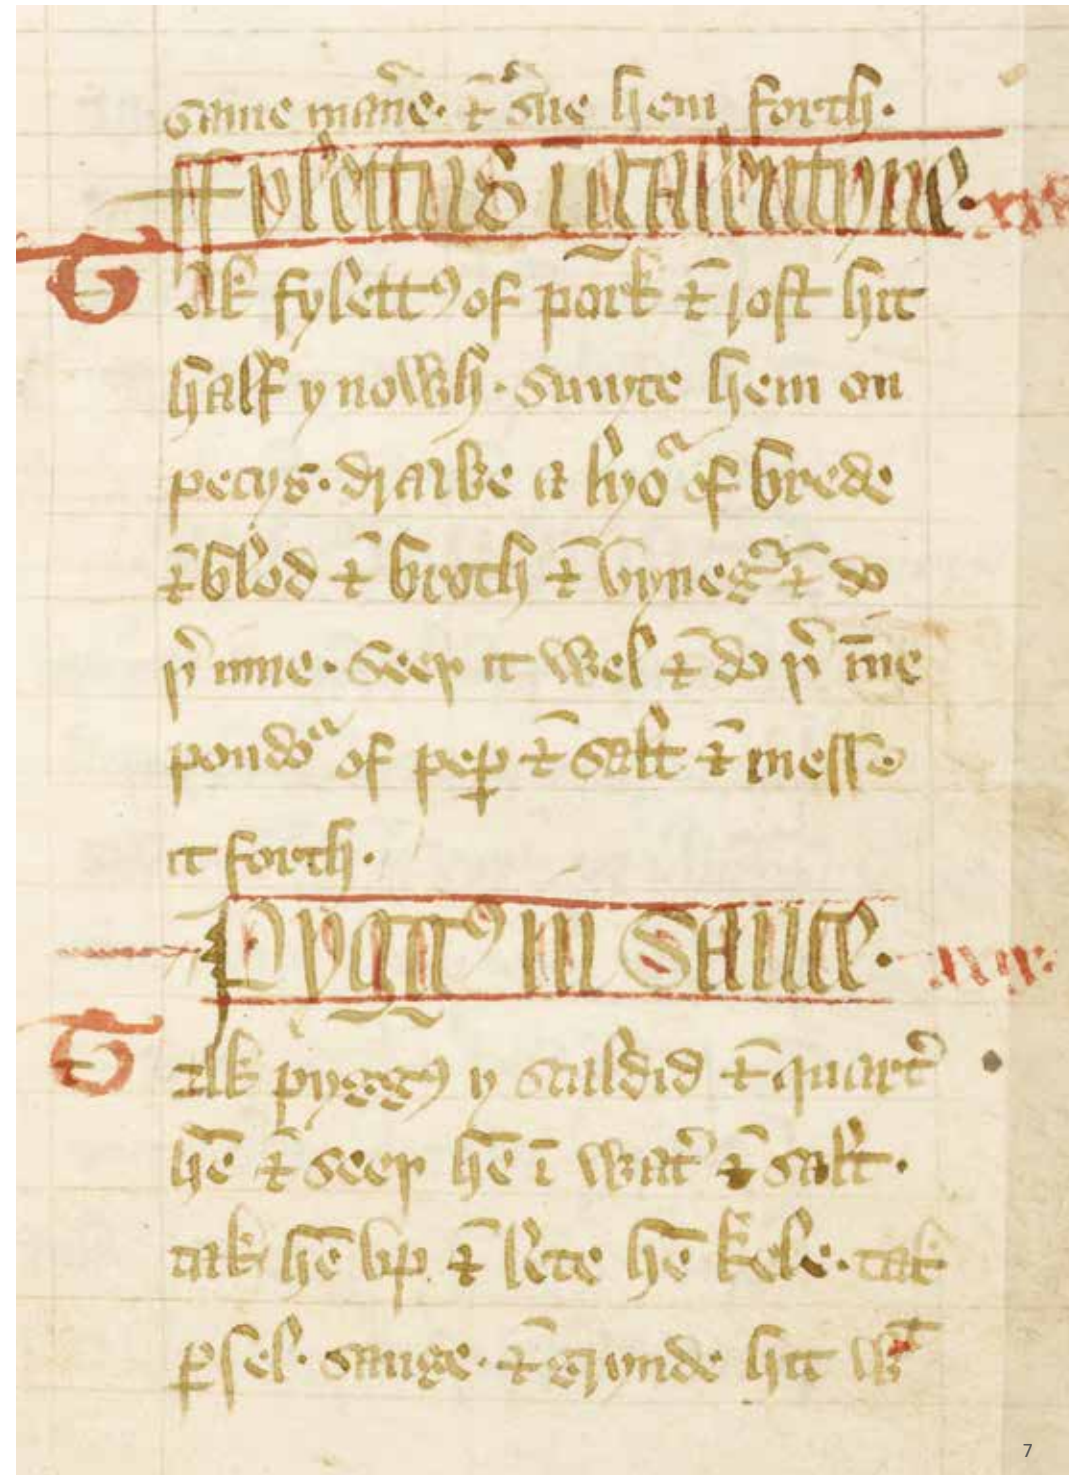 same man̄e. & s̄ue hem forth.
ffylettus i galentyne. xxiij
Tak fylettꝰ of pork & rost hit
half ynowh. smyte hem on
pecys. drawe a lyoͬ of brede
& blod & broth & vynegͬ & do
þ̉ inne. Seeþ it wel & do þ̉ īne
poudoͬ of peꝑ & salt & messe
it forth.
Pyggꝰ in sauce.
Tak pyggꝰ y scaldid & quart̉
hē & seeþ hē ī wat̉ & salt.
tak hē vp & lete hē kele. tak
ꝑsel. sauge. & grynde hit wᵗ
7